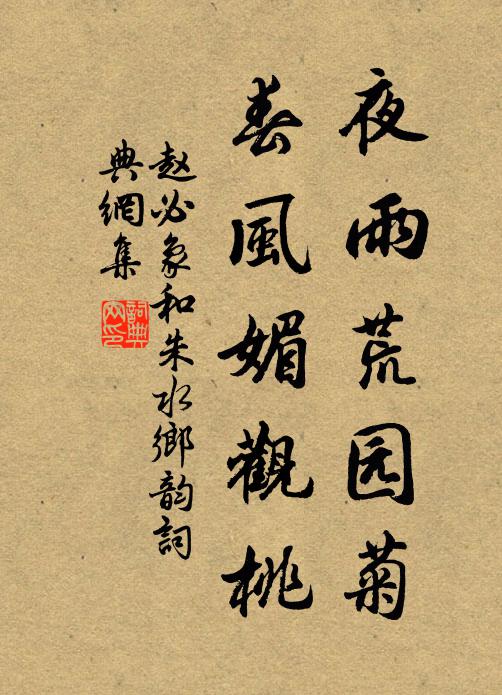 夜雨荒园菊
春風媚觀桃
赵必象和朱水鄉韵詞
典網集
詞典网印